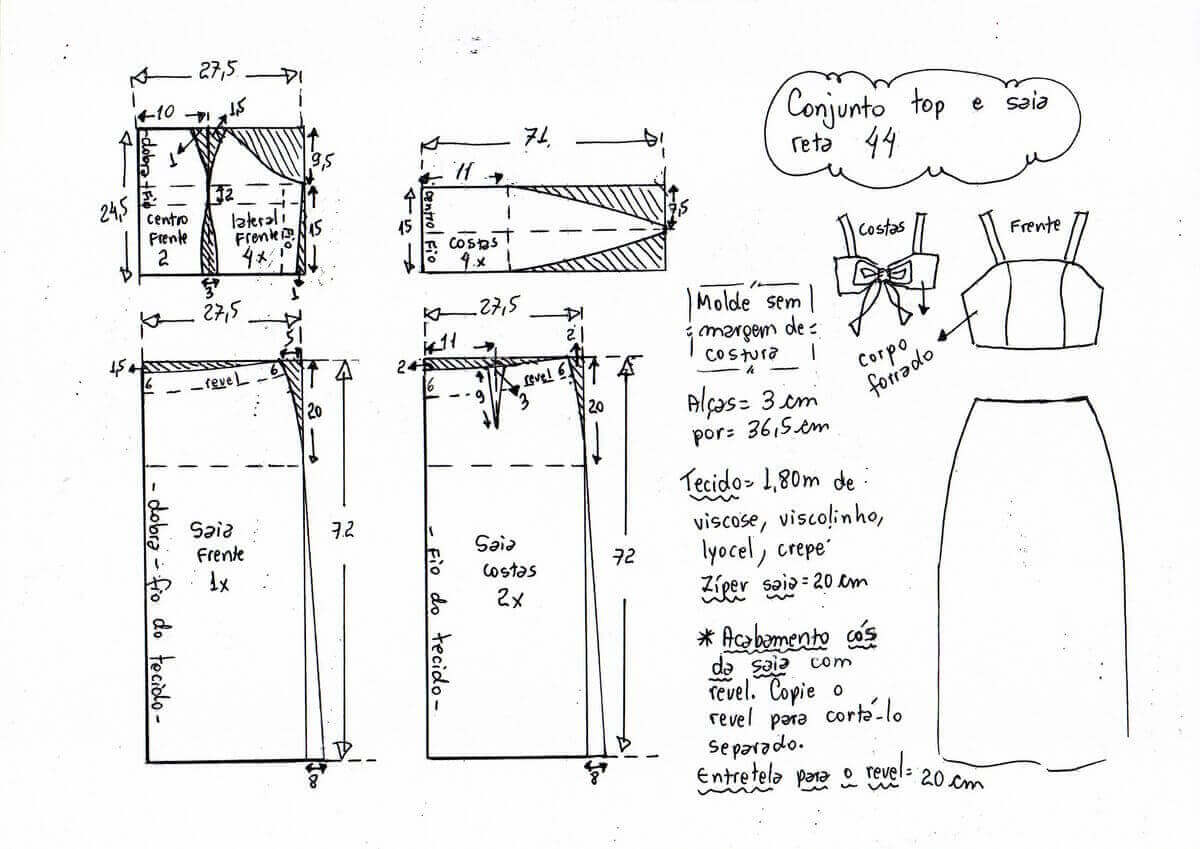 Conjunto top e saia
reta 44
27,5
10
1,5
1
9,5
24,5
- dobra fio
2
centro
Frente
2
lateral
Frente
4x
Fio
15
3
1
71
11
7,5
15
centro Fio
costas
4x
Costas
Frente
corpo
forrado
27,5
5
1,5
6
revel
6
20
72
- dobra - fio do tecido -
Saia
Frente
1x
8
27,5
11
2
2
6
revel
6
9
3
20
72
- Fio do tecido -
Saia
costas
2x
8
Molde sem
margem de
costura
Alças = 3 cm
por = 36,5 cm
Tecido = 1,80m de
viscose, viscolinho,
lyocel, crepe
Zíper saia = 20 cm
* Acabamento cós
da saia com
revel. Copie o
revel para cortá-lo
separado.
Entretela para o revel = 20 cm